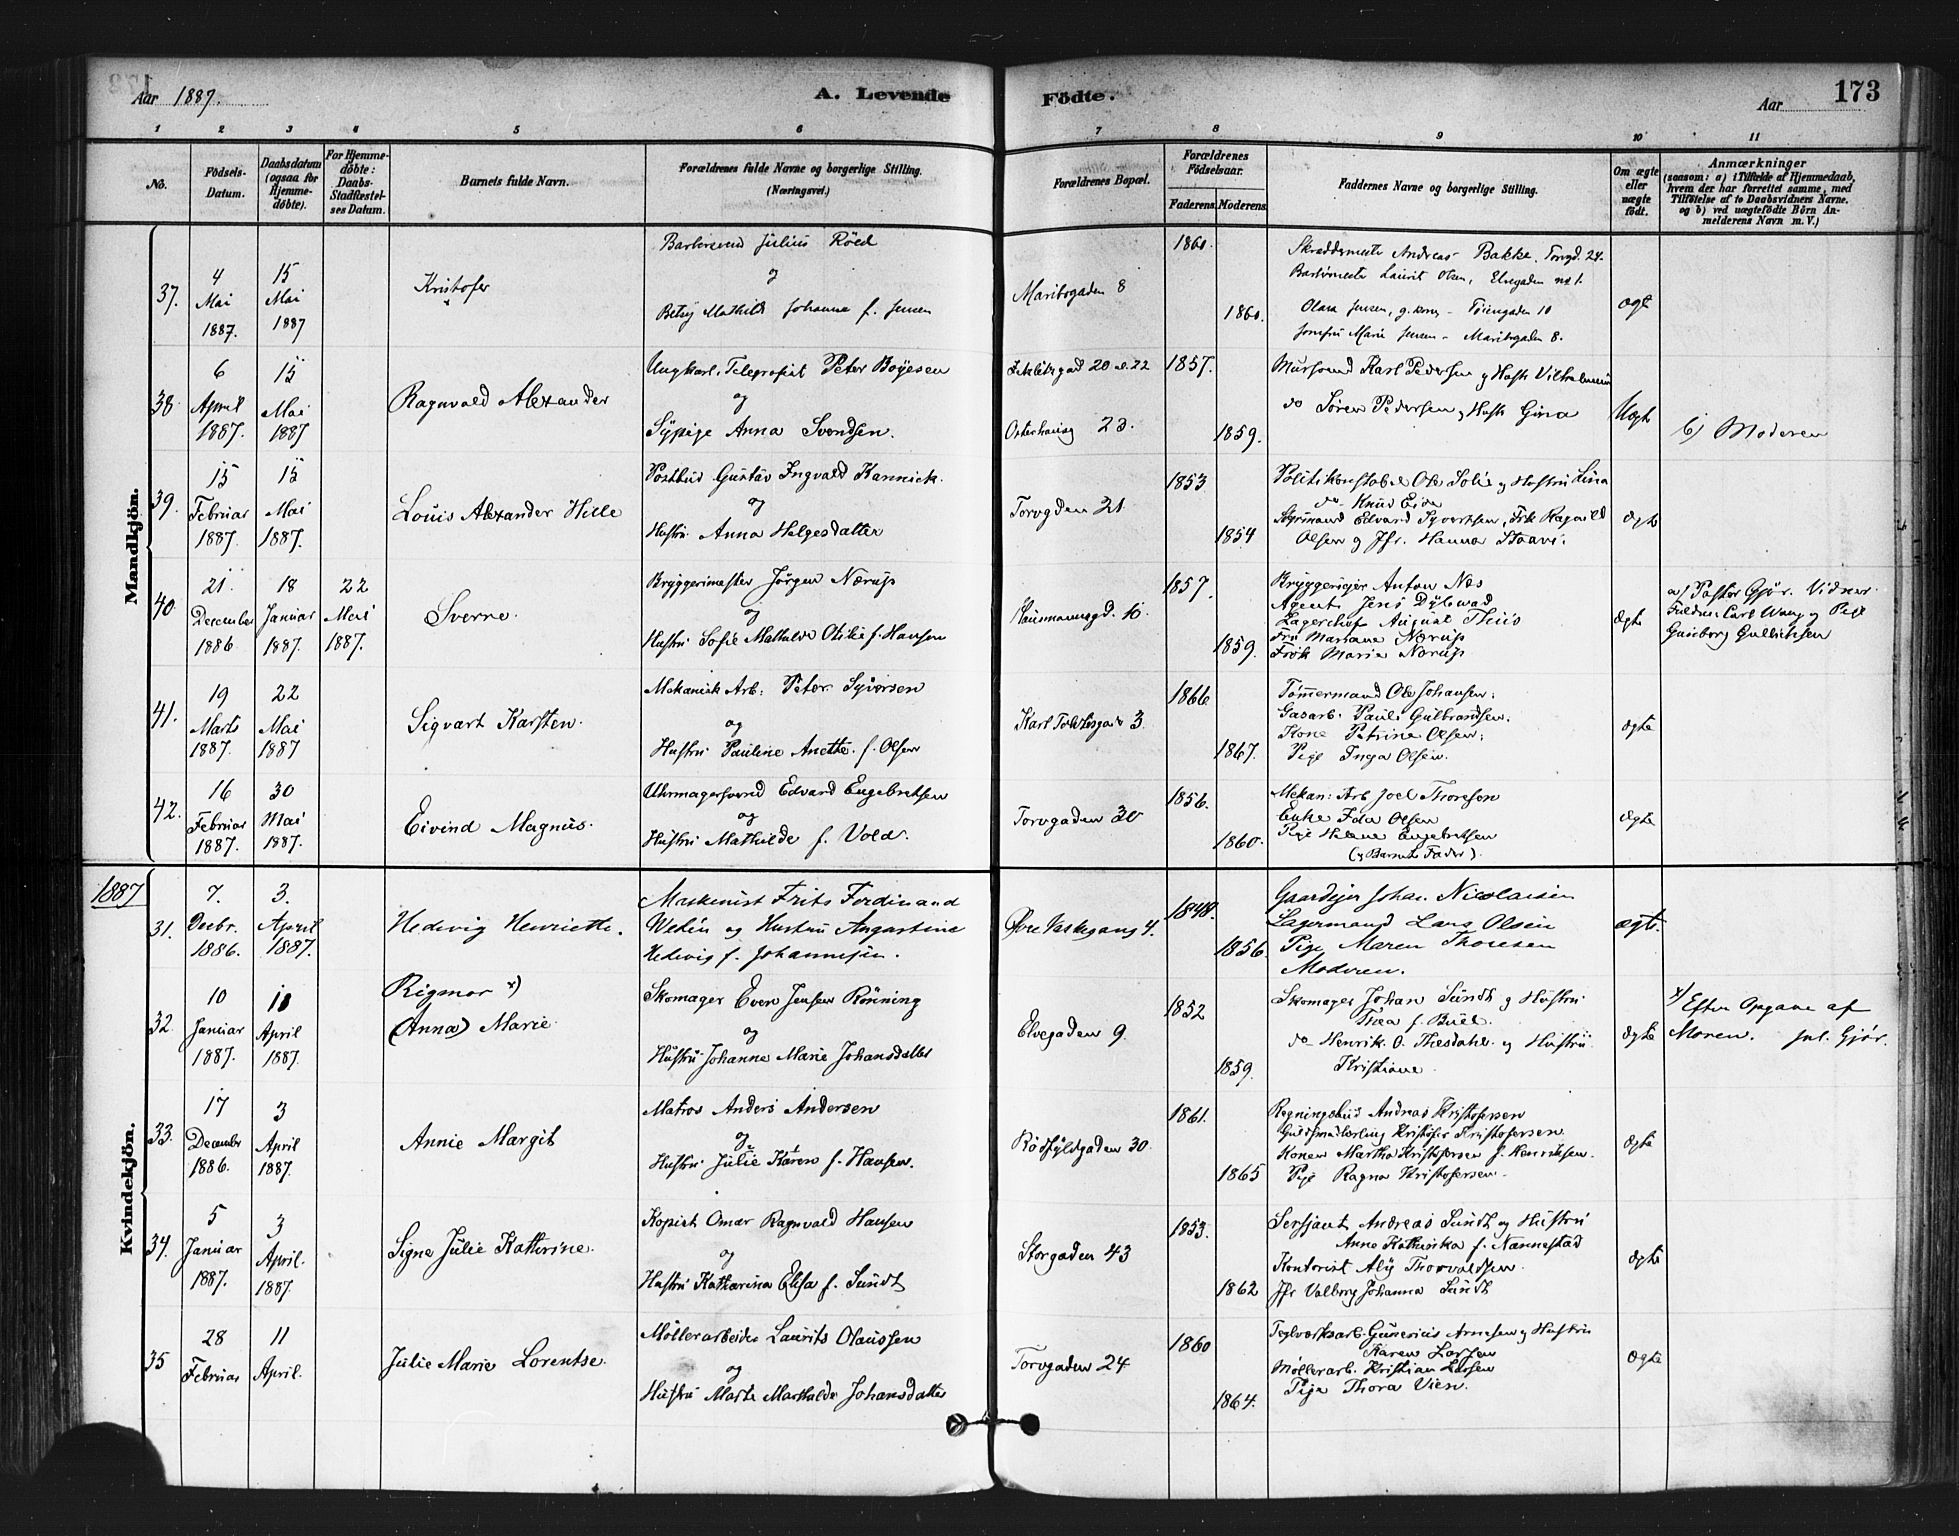 Aar 1887.
A. Levende
Födte.
Aar
173
1
2
3
4
5
6
7
8
9
10
11
No.
Födsels-
Datum.
Daabsdatum
(ogsaa for
Hjemme-
döbte).
For Hjemme-
döbte:
Daabs-
Stadfæstel-
ses Datum.
Barnets fulde Navn.
Forældrenes fulde Navne og borgerlige Stilling.
(Næringsvei.)
Forældrenes Bopæl.
Forældrenes
Födselsaar.
Faderens.
Moderens.
Faddernes Navne og borgerlige Stilling.
Om ægte
eller
uægte
födt.
Anmærkninger
(saasom: a) i Tilfælde af Hjemmedaab,
hvem der har forrettet samme, med
Tilföielse af to Daabsvidners Navne.
og b) ved uægtefödte Börn An-
melderens Navn m. V.)
Mandkjön.
37.
4
Mai
1887.
15
Mai
1887
Kristofer
Barbersvend Julius Röed
og
Betsy Mathilde Johanne f. Jensen
Maribogaden 8
1860.
1860.
Skræddermester Andreas Bakke, Torvgd. 24.
Barbermester Laurit Olsen, Elvegaden no 1.
Olava Jensen, g. kone - Töiengaden 10
Jomfru Marie Jensen - Maribogaden 8.
ægte
38.
6
April
1887.
15
Mai
1887
Ragnvald Alexander
Ungkarl, Telegrafist Peter Boyesen
og
Sypige Anna Svendsen.
20 e. 22
23.
1857.
1859.
Mursvend Karl Pedersen og Hustr Vilhelmine
do Sören Pedersen og Hustr Gina
Uægte
b) Moderen
39.
15
Februar
1887.
15
Mai
1887.
Louis Alexander Hille
Postbud Gustav Ingvald Kannick.
og
Hustru Anna Helgesdatter
Torvgden 21
1853
1854
Politikonstabel Ole Solie og Hustru Lina
do Knud Eide
Styrmand Edvard Syvertsen, Frk Ragnild
Olsen og Jfr. Hanna
ægte
40.
21
December
1886.
18
Januar
1887.
22
Mai
1887.
Sverre.
Bryggerimester Jörgen Nærup
og
Hustru Sofie Mathilde Otilie f. Hansen
10.
1857.
1859.
Bryggerieier Anton Næs
Agent Jens Dybwad
Lagerchef August Thiis
Fru Mariane Nærup
Frök Marie Nærup.
ægte
a) Pastor Gjör. Vidner:
Carl Wang og Pige
Gunborg Gullichsen
41.
19
Marts
1887.
22
Mai
1887
Sigvart Karsten.
Mekanisk Arb: Peter Syversen
og
Hustru Pauline Anette f. Olsen
3.
1866
1867.
Tömmermand Ole Johansen;
Gasarb. Paul Gulbrandsen.
Kone Petrine Olsen;
Pige Inga Olsen.
ægte
42.
16
Februar
1887.
30
Mai
1887.
Eivind Magnus.
Uhrmagersvend Edvard Engebretsen
og
Hustru Mathilde f. Vold.
Torvgaden 30
1856.
1860.
Mekan: Arb Joel Thoresen
Enke Olsen
Pige Helene Engebretsen
(og Barnets Fader).
ægte
1887
Kvindekjön.
31.
7.
Decbr.
1886.
3.
April
1887.
Hedevig Henriette.
Maskinist Frits Ferdinand
Wedén og Hustru Augustine
Hedevig f. Johannesen.
Övre Vaskegang 4.
1848.
1856.
Gaardejer Johan Nicolaisen
Lagermand Lars Olsen
Pige Maren Thoresen
Moderen.
ægte.
32.
10
Januar
1887.
11
April
1887.
Rigmor x)
(Anna) Marie.
Skomager Even Jensen Rönning
og
Hustru Johanne Marie Johansdatter
Elvegaden 9.
1852
1859.
Skomager Johan Sundt og Hustru
Thea f. Buel.
do Henrik O. og Hustru
Kristiane
ægte
x) Efter Opgave af
Moren. Gjör.
33.
17
December
1886.
3
April
1887.
Annie Margit
Matros Anders Andersen
og
Hustru Julie Karen f. Hansen.
Rödfyldgaden 30.
1861.
1865
Regningsbud Andreas Kristofersen
Guldsmedlærling Kristofer Kristofersen
Konen Martha Kristofersen f. Henriksen.
Pige Ragna Kristofersen.
ægte
34.
5
Januar
1887.
3
April.
1887.
Signe Julie Kathrine.
Kopist Omar Ragnvald Hansen
og
Hustru Katharina Elisa f. Sundt
Storgaden 43
1853.
1862
Sersjant Andreas Sundt og Hustru
Anne Kathinka f. Nannestad
Kontorist Aly Thorvaldsen.
Jfr Valborg Johanna Sundt
ægte
35
28
Februar
11
April.
Julie Marie Lorentse.
Möllerarbeider Laurits Olaussen
og
Hustru Marte Mathilde Johansdatter
Torvgaden 24
1860
1864.
Teglværksarb. Gunerius Arnesen og Hustru
Karen Larsen
Möllerarb. Kristian Larsen
Pige Thora Vien.
ægte